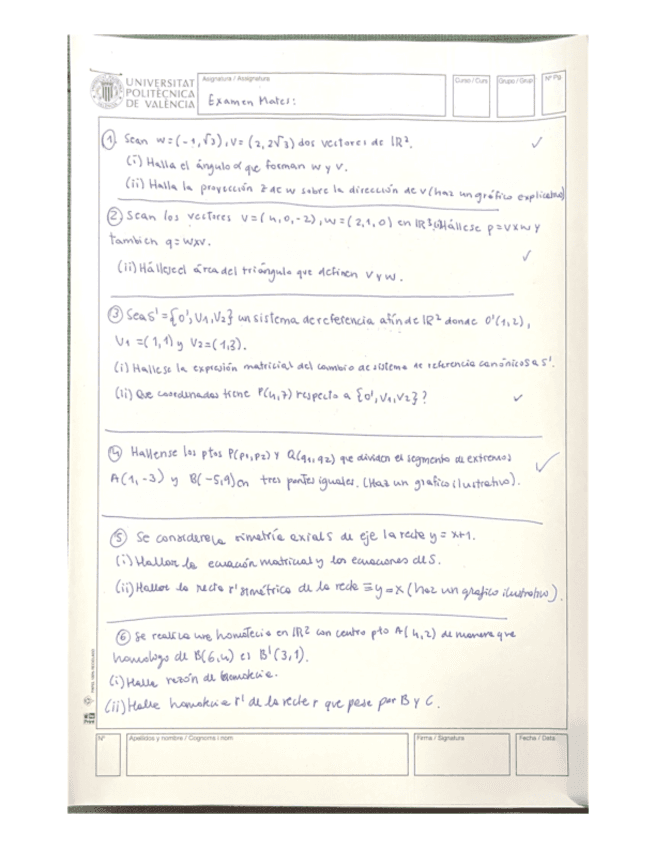 UNIVERSITAT
POLITÈCNICA
DE VALÈNCIA
Asignatura / Assignatura
Curso / Curs
Grupo / Grup
Nº Pg
Examen Mates:
① Sean w=(-1,√3), v=(2,2√3) dos vectores de IR².
(i) Halla el ángulo α que forman w y v.
(ii) Halla la proyección z de w sobre la dirección de v (haz un gráfico explicativo)
② Sean los vectores v=(4,0,-2), w=(2,1,0) en IR³. (i) Hállese p=v×w y
tambien q=w×v.
(ii) Hállese el área del triángulo que definen v y w.
③ Sea S'={O',V1,V2} un sistema de referencia afín de IR² donde O'(1,2),
V1=(1,1) y V2=(1,3).
(i) Hallese la expresión matricial del cambio de sistema de referencia canónico S a S'.
(ii) Que coordenadas tiene P(4,7) respecto a {O',V1,V2}?
④ Hallense los ptos P(p1,p2) y Q(q1,q2) que dividen el segmento de extremos
A(1,-3) y B(-5,9) en tres partes iguales. (Haz un grafico ilustrativo).
⑤ Se considere la simetría axial S de eje la recta y=x+1.
(i) Hallar la ecuación matricial y las ecuaciones de S.
(ii) Hallar la recta r' simétrica de la recta ≡y=x (haz un grafico ilustrativo).
⑥ Se realiza una homotecia en IR² con centro pto A(4,2) de manera que
homologo de B(6,4) es B'(3,1).
(i) Halla razón de homotecia.
(ii) Halla homotecia r' de la recta r que pasa por B y C.
Nº
Apellidos y nombre / Cognoms i nom
Firma / Signatura
Fecha / Data